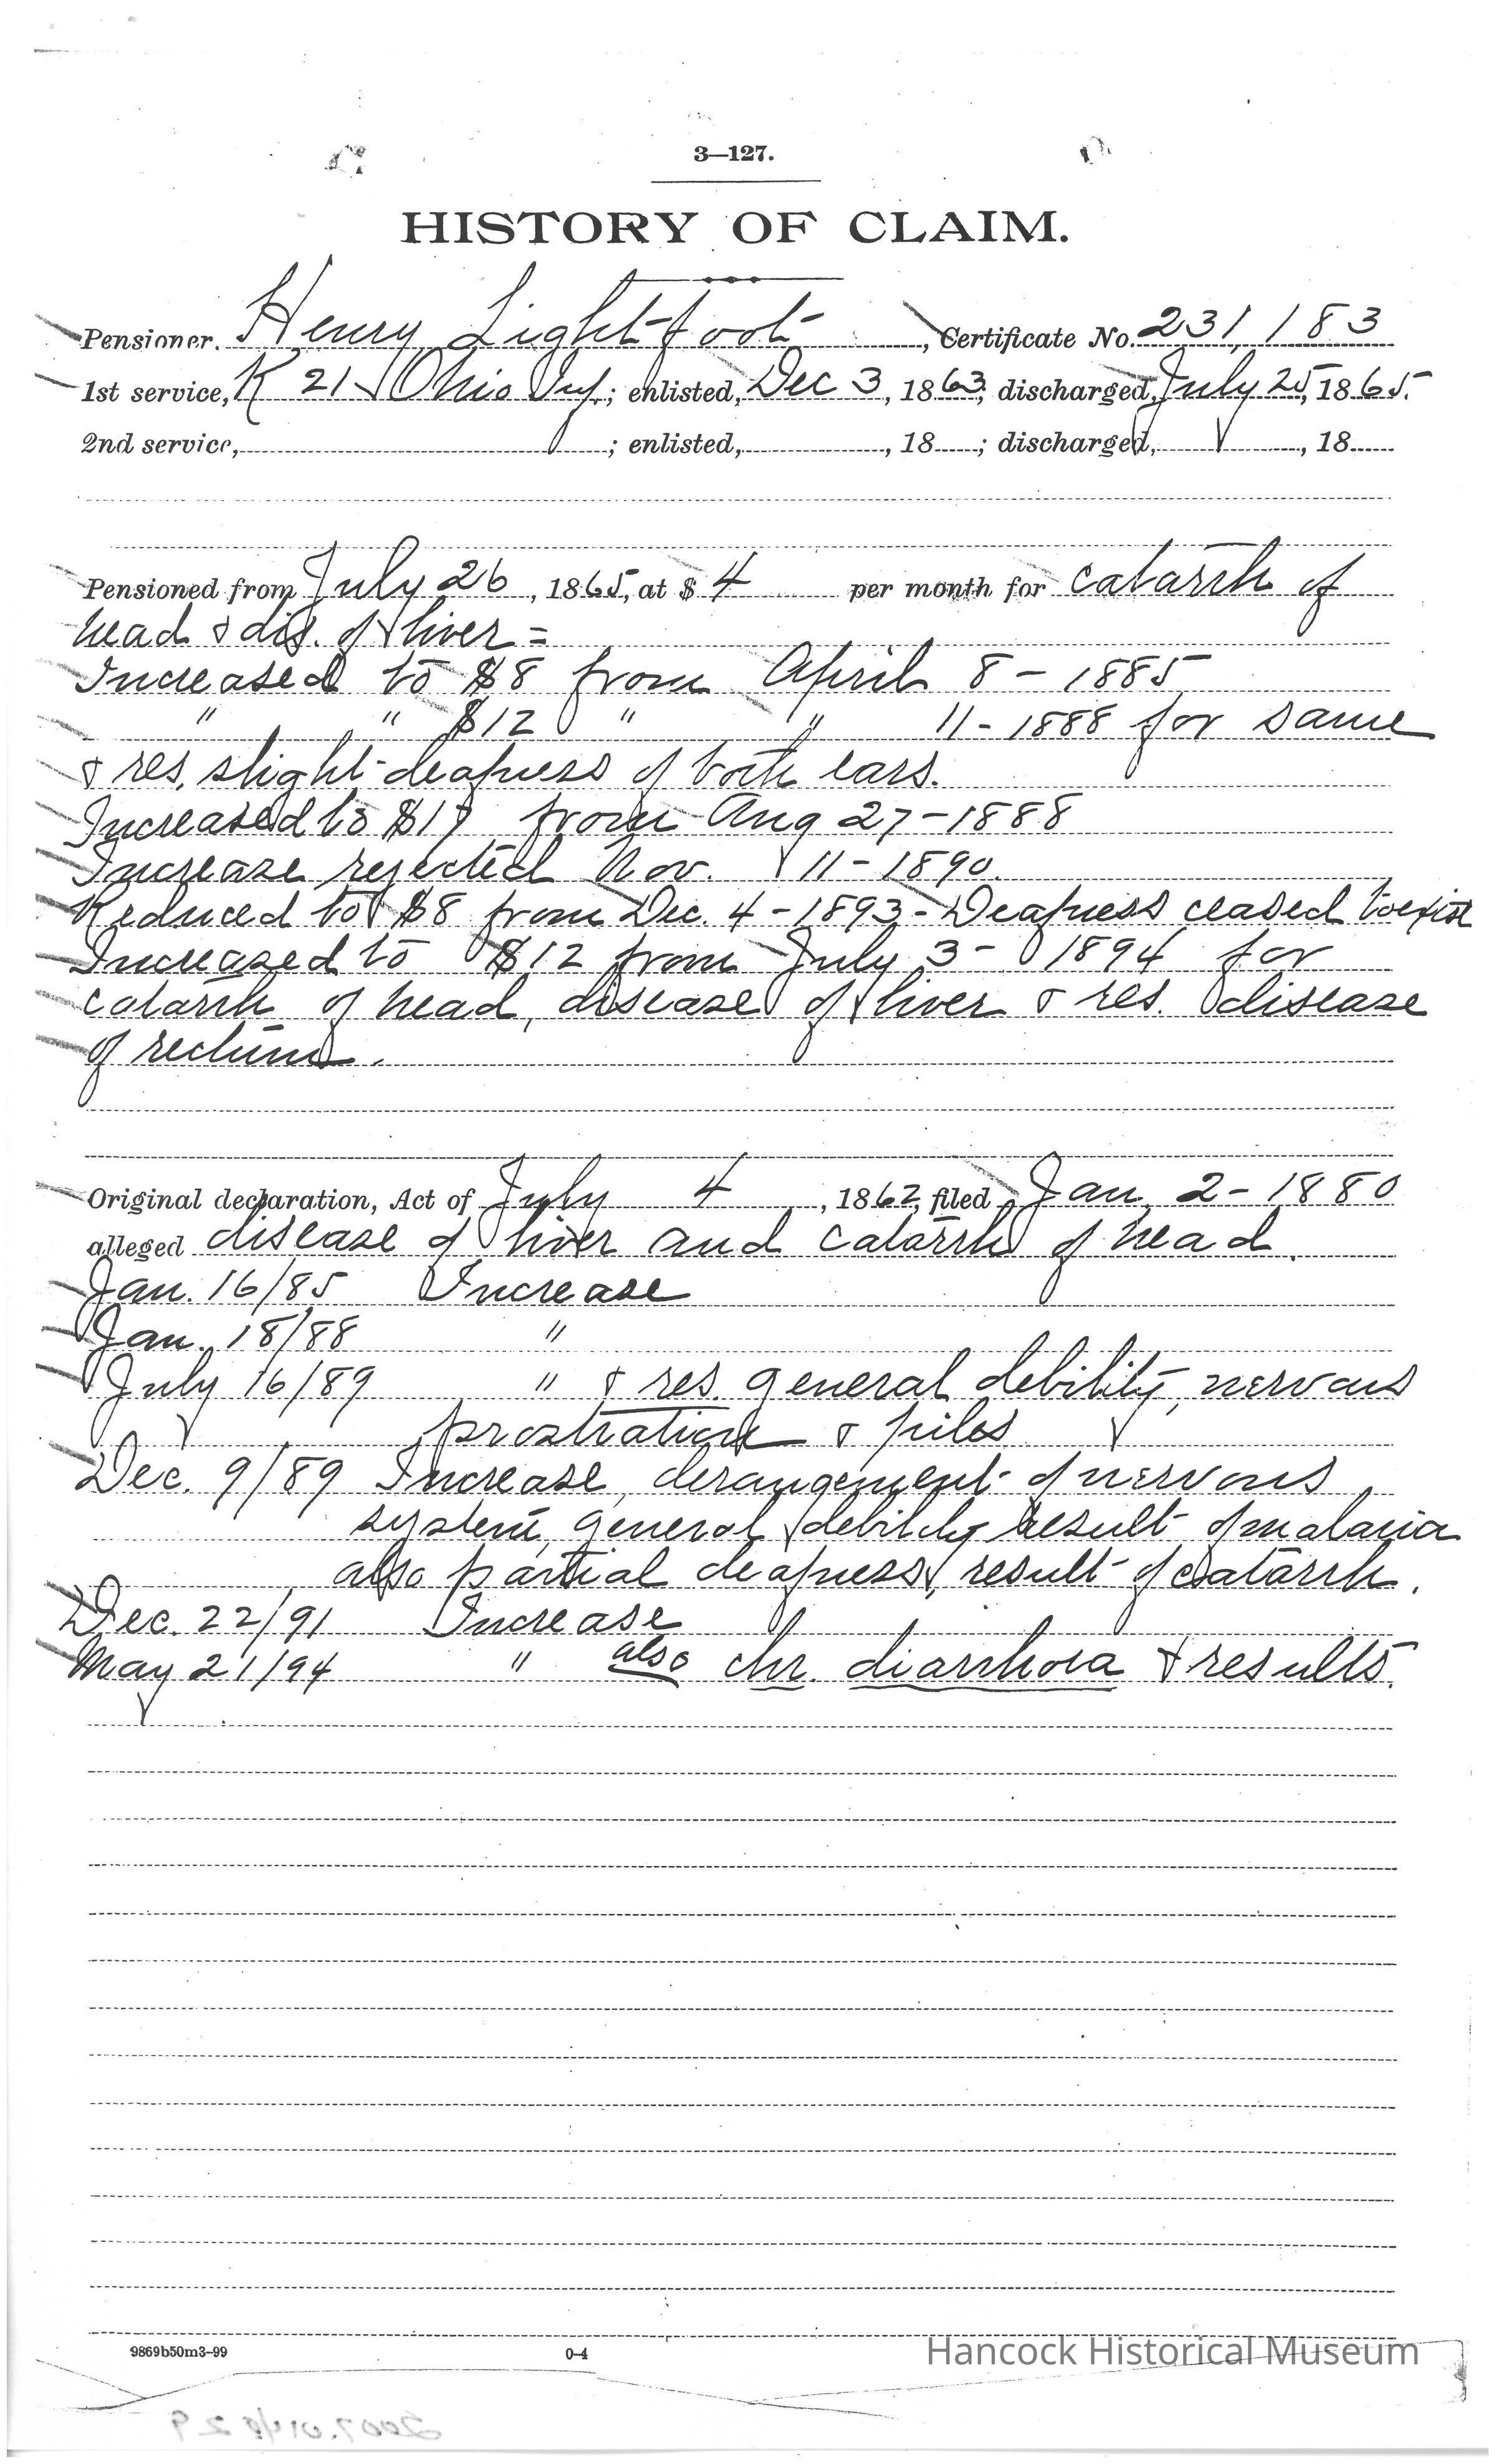 3—127.
HISTORY OF CLAIM.
Pensioner, Henry Lightfoot, Certificate No. 231,183
1st service, K 21 Ohio Inf.; enlisted, Dec 3, 1863; discharged, July 25, 1865.
2nd service, ; enlisted, , 18 ; discharged, , 18
Pensioned from July 26, 1865, at $ 4 per month for catarrh of
head & dis. of liver =
Increased to $8 from April 8 - 1885
" " $12 " " 11 - 1888 for same
& res. slight deafness of both ears.
Increased to from Aug 27 - 1888
Increase rejected Nov. 11 - 1890.
Reduced to $8 from Dec. 4 - 1893 - Deafness ceased to exist
Increased to $12 from July 3 - 1894 for
catarrh of head, disease of liver & res. disease
of rectum.
Original declaration, Act of July 4, 1862, filed Jan. 2 - 1880
alleged disease of liver and catarrh of head.
Jan. 16/85 Increase
Jan. 18/88 "
July 16/89 " & res. general debility, nervous
prostration & piles
Dec. 9/89 Increase, derangement of nervous
system, general debility result of malaria
also partial deafness, result of catarrh.
Dec. 22/91 Increase
May 21/94 " also chr. diarrhoea & results.
9869b50m3-99
0-4
Hancock Historical Museum